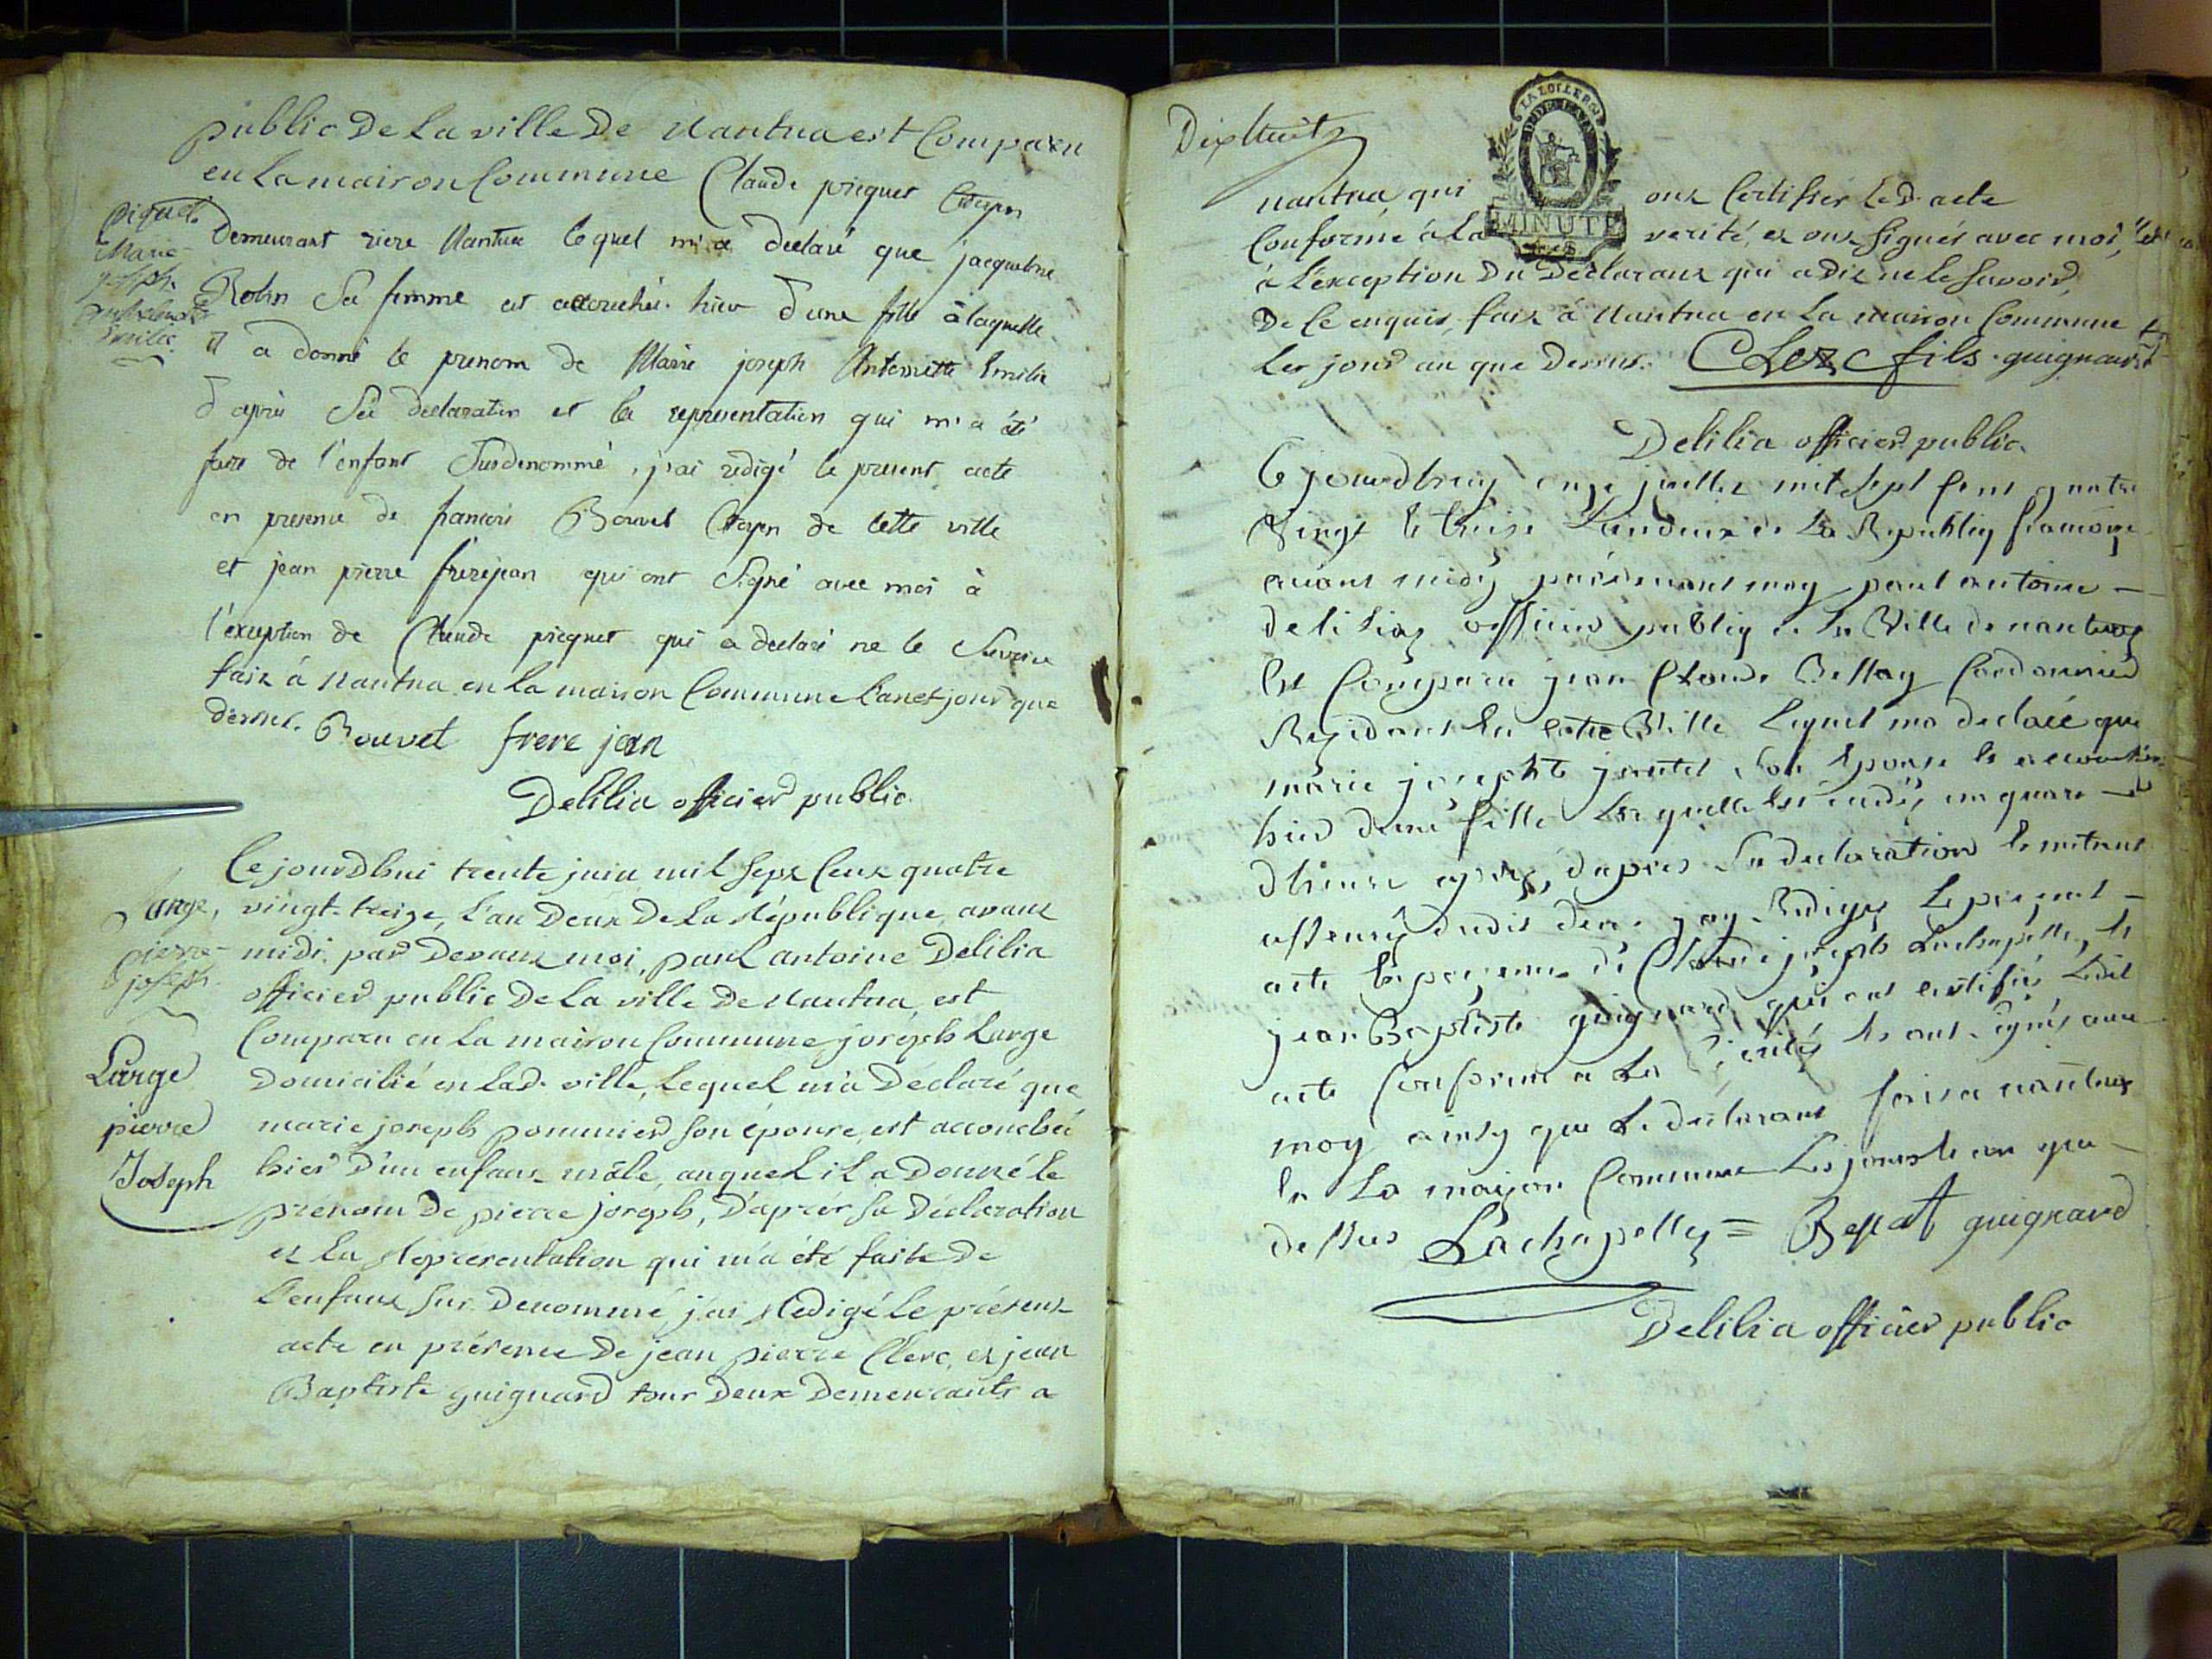 public De La ville De Nantua est Comparu
en La maison Commune Claude picquet Citoyen
piquet
Marie
joseph
Emilie
Demeurant riere Nantua lequel m'a declaré que jacqueline
Robin Sa femme est accouchée hier d'une fille à laquelle
il a donné le prenom de Marie joseph Antoinette Emilie
d'après Sa declaration et la representation qui m'a été
faite de l'enfant Susdenommé, j'ai redigé le present acte
en presence de francois Bouvet Citoyen de cette ville
et jean pierre frerejean qui ont Signé avec moi à
l'exception de Claude picquet qui a declaré ne le Savoir
fait à Nantua en La maison Commune L'an et jour que
dessus. Bouvet frere jean
Delilia officier public.
Large,
pierre-
joseph.
Large
pierre
Joseph
Cejourdhui trente juin mil Sept Cent quatre
vingt-treize, L'an Deux De La République, avant
midi, par Devant moi, paul antoine Delilia
officier public De La ville De Nantua, est
Comparu en La maison Commune joseph Large
Domicilié en Lad. ville, Lequel m'a Déclaré que
marie joseph pommier son épouse, est accouchée
hier D'un enfant mâle, auquel il a Donné le
prénom De pierre joseph, D'après sa Déclaration
et La Représentation qui m'a été faite De
L'enfant sus-Denommé, j'ai Redigé Le présent
acte en présence De jean pierre Clerc, et jean
Baptiste guignard tous Deux Demeurants a
Dix huit
LA LOI LE ROI
MINUTE
nantua, qui ont Certifier Le D. acte
Conforme à La verité, et ont signés avec moi,
à L'exception Du Déclarant qui a dit ne le Savoir,
De Ce enquis, fait à Nantua en La maison Commune
Les jour an que Dessus. CLerc fils guignard
Delilia officier public.
Ce jourdhuy onze juillet mil Sept Cent quatre
Vingt et treize L'an deux de La Republiq francoise
avant midy pardevant moy paul antoine
delilia officier publiq de La Ville de nantua
Est Comparu jean Claude Bessay Cordonnier
Rezidant En cette Ville Lequel ma declaré que
marie josephte jantet Son Epouse Et accouchée
hier d'une fille Laquelle Est un quart
dheure apres, dapres Sa declaration Et
jay Redigé Le present
acte En presence de Claude joseph Lachapelle, Et
jean Baptiste guignard qui ont certifié Ledit
acte Conforme a La Verité Et ont signés avec
moy ainsy que Le declarant fait a nantua
En La maizon Commune Les jours et an que
dessus Lachapelle = Bessat guignard
Delilia officier public